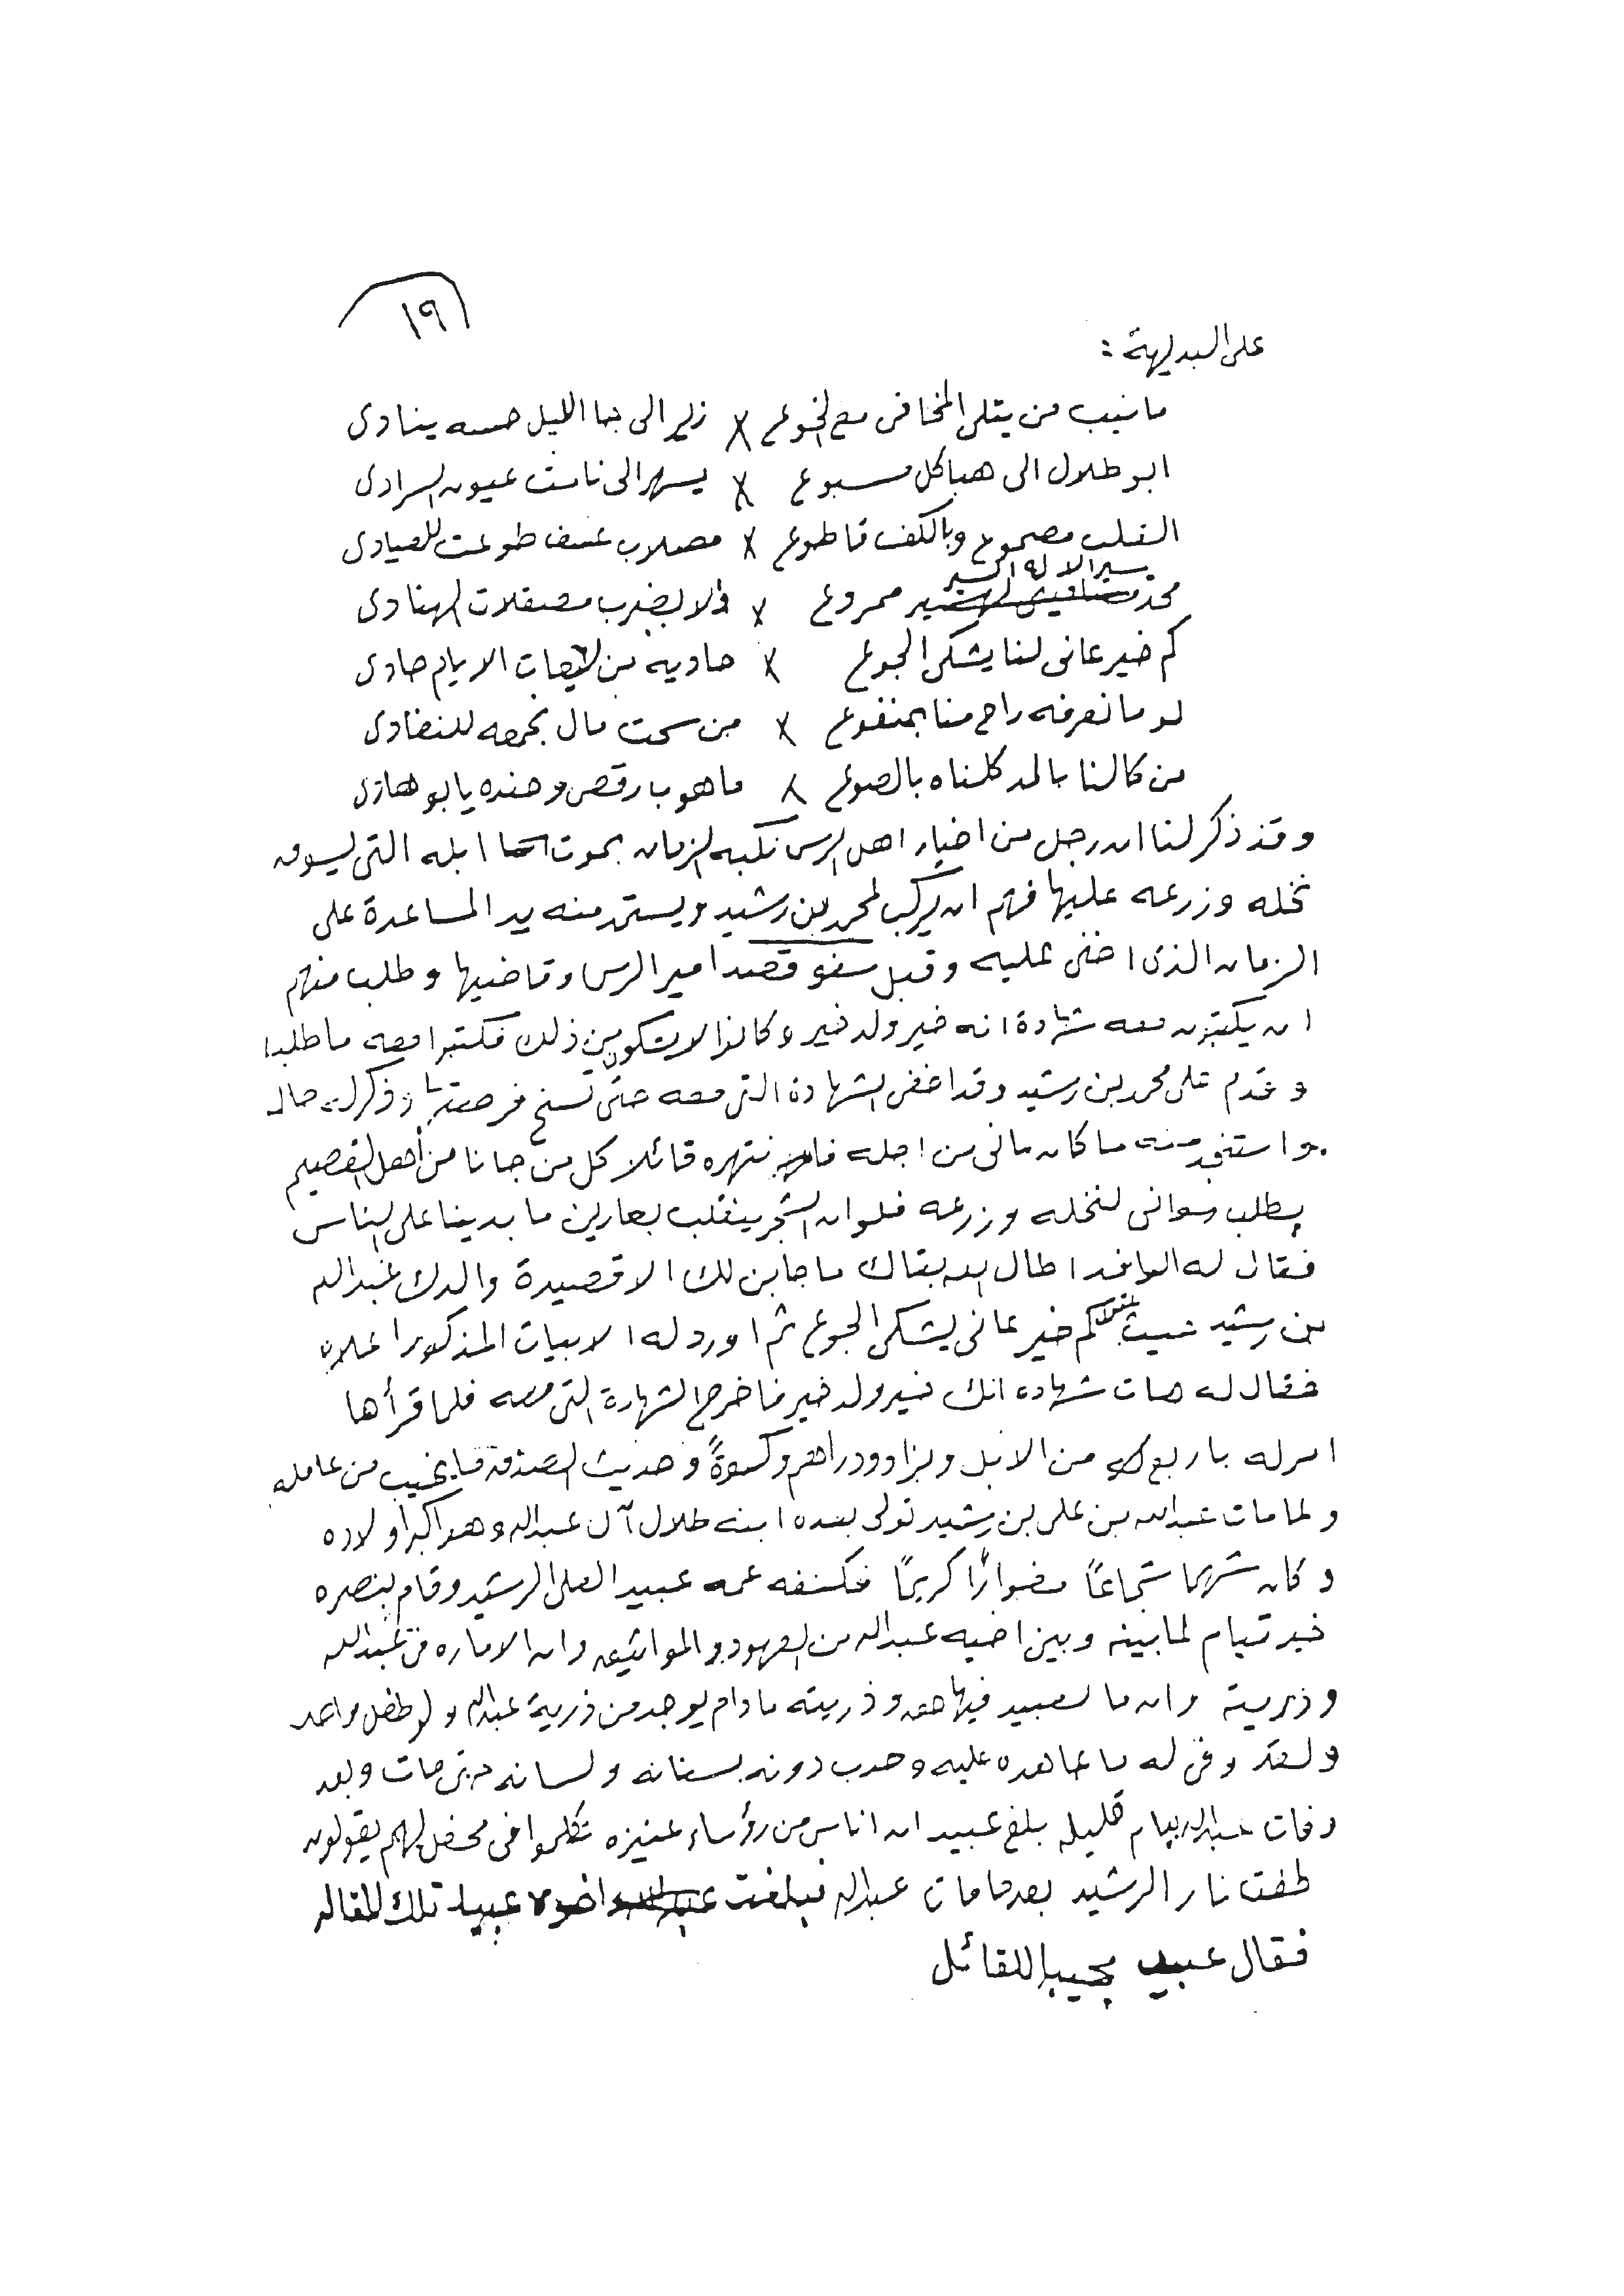 ١٩
على البديهة :
مانيب من يتلي المخافى مع الخوع × زير الى جا الليل حسه ينادى
ابو طلال الى هبا كل مسبوع × يسهر الى نامت عيون السرادى
القلب مصموع وبالكف قاطوع × مصلاب عسف طوعت للصيادى
سير الاله
ممروع × والا بضرب مصقلات الهنادى
كم خير عانى لنا يشكى الجوع × حاديه من لايعات الايام حادى
لو ما نعرفه راح منا بمنفوع × من سحت مال نجمعه للنفادى
من كالنا بالمد كلناه بالصوع × ماهو برقص وحنده يابو هادى
وقد ذكر لنا ان رجل من اخيار اهل الرس نكبه الزمان بموت ابله التى يسوق
نخله وزرعه عليها فهم ان يركب لمحمد بن رشيد ويستمد منه يد المساعدة على
الزمان الذى اخنى عليه وقبل سفره قصد امير الرس وقاضيها وطلب منهم
ان يكتبون معه شهادة انه خير ولد خير وكانوا لا يشكون من ذلك فكتبوا معه ما طلب
وقدم على محمد بن رشيد وقد اخفى الشهادة التى معه حتى تسنح فرصتها وذكر له حاله
واستنجد منه ما كان عانى من اجله فانتهره قائلا كل من جانا من أهل القصيم
يطلب سوانى لنخله وزرعه فلو ان الشجر ينقلب بعارين ما بدينا على الناس
فقال له الوافد اطال الله بقاك ما جابن لك الا قصيدة والدك عبدالله
بن رشيد حيث يقول كم خير عانى يشكى الجوع ثم اورد له الابيات المذكورا علاه
فقال له هات شهاده انك خير ولد خير فاخرج الشهادة التى معه فلما قرأها
امر له باربع من الابل وبزاد ودراهم وكسوةً وحديث الصدق ما يخيب من عامله
ولما مات عبدالله بن على بن رشيد تولى بعده ابنه طلال آل عبدالله وهو اكبر اولاده
وكان شهما شجاعًا مغوارًا كريمًا فكنفه عمه عبيد العلى الرشيد وقام بنصره
خير قيام لما بينه وبين اخيه عبدالله من العهود والمواثيق وان الاماره فى عبدالله
وذريته وان ما لعبيد فيها حق وذريته ما دام يوجد من ذرية عبدالله ولو طفل واحد
ولقد وفى له ما عاهده عليه وحدب دونه بسنانه ولسانه حتى مات وبعد
وفات عبدالله بيام قليله بلغ عبيد ان اناس من رؤساء عنيزه تكلموا فى محفل لهم يقولون
طفت نار الرشيد بعد ما مات عبدالله فبلغت اخوه عبيد تلك المقاله
فقال عبيد مجيبا للقائل